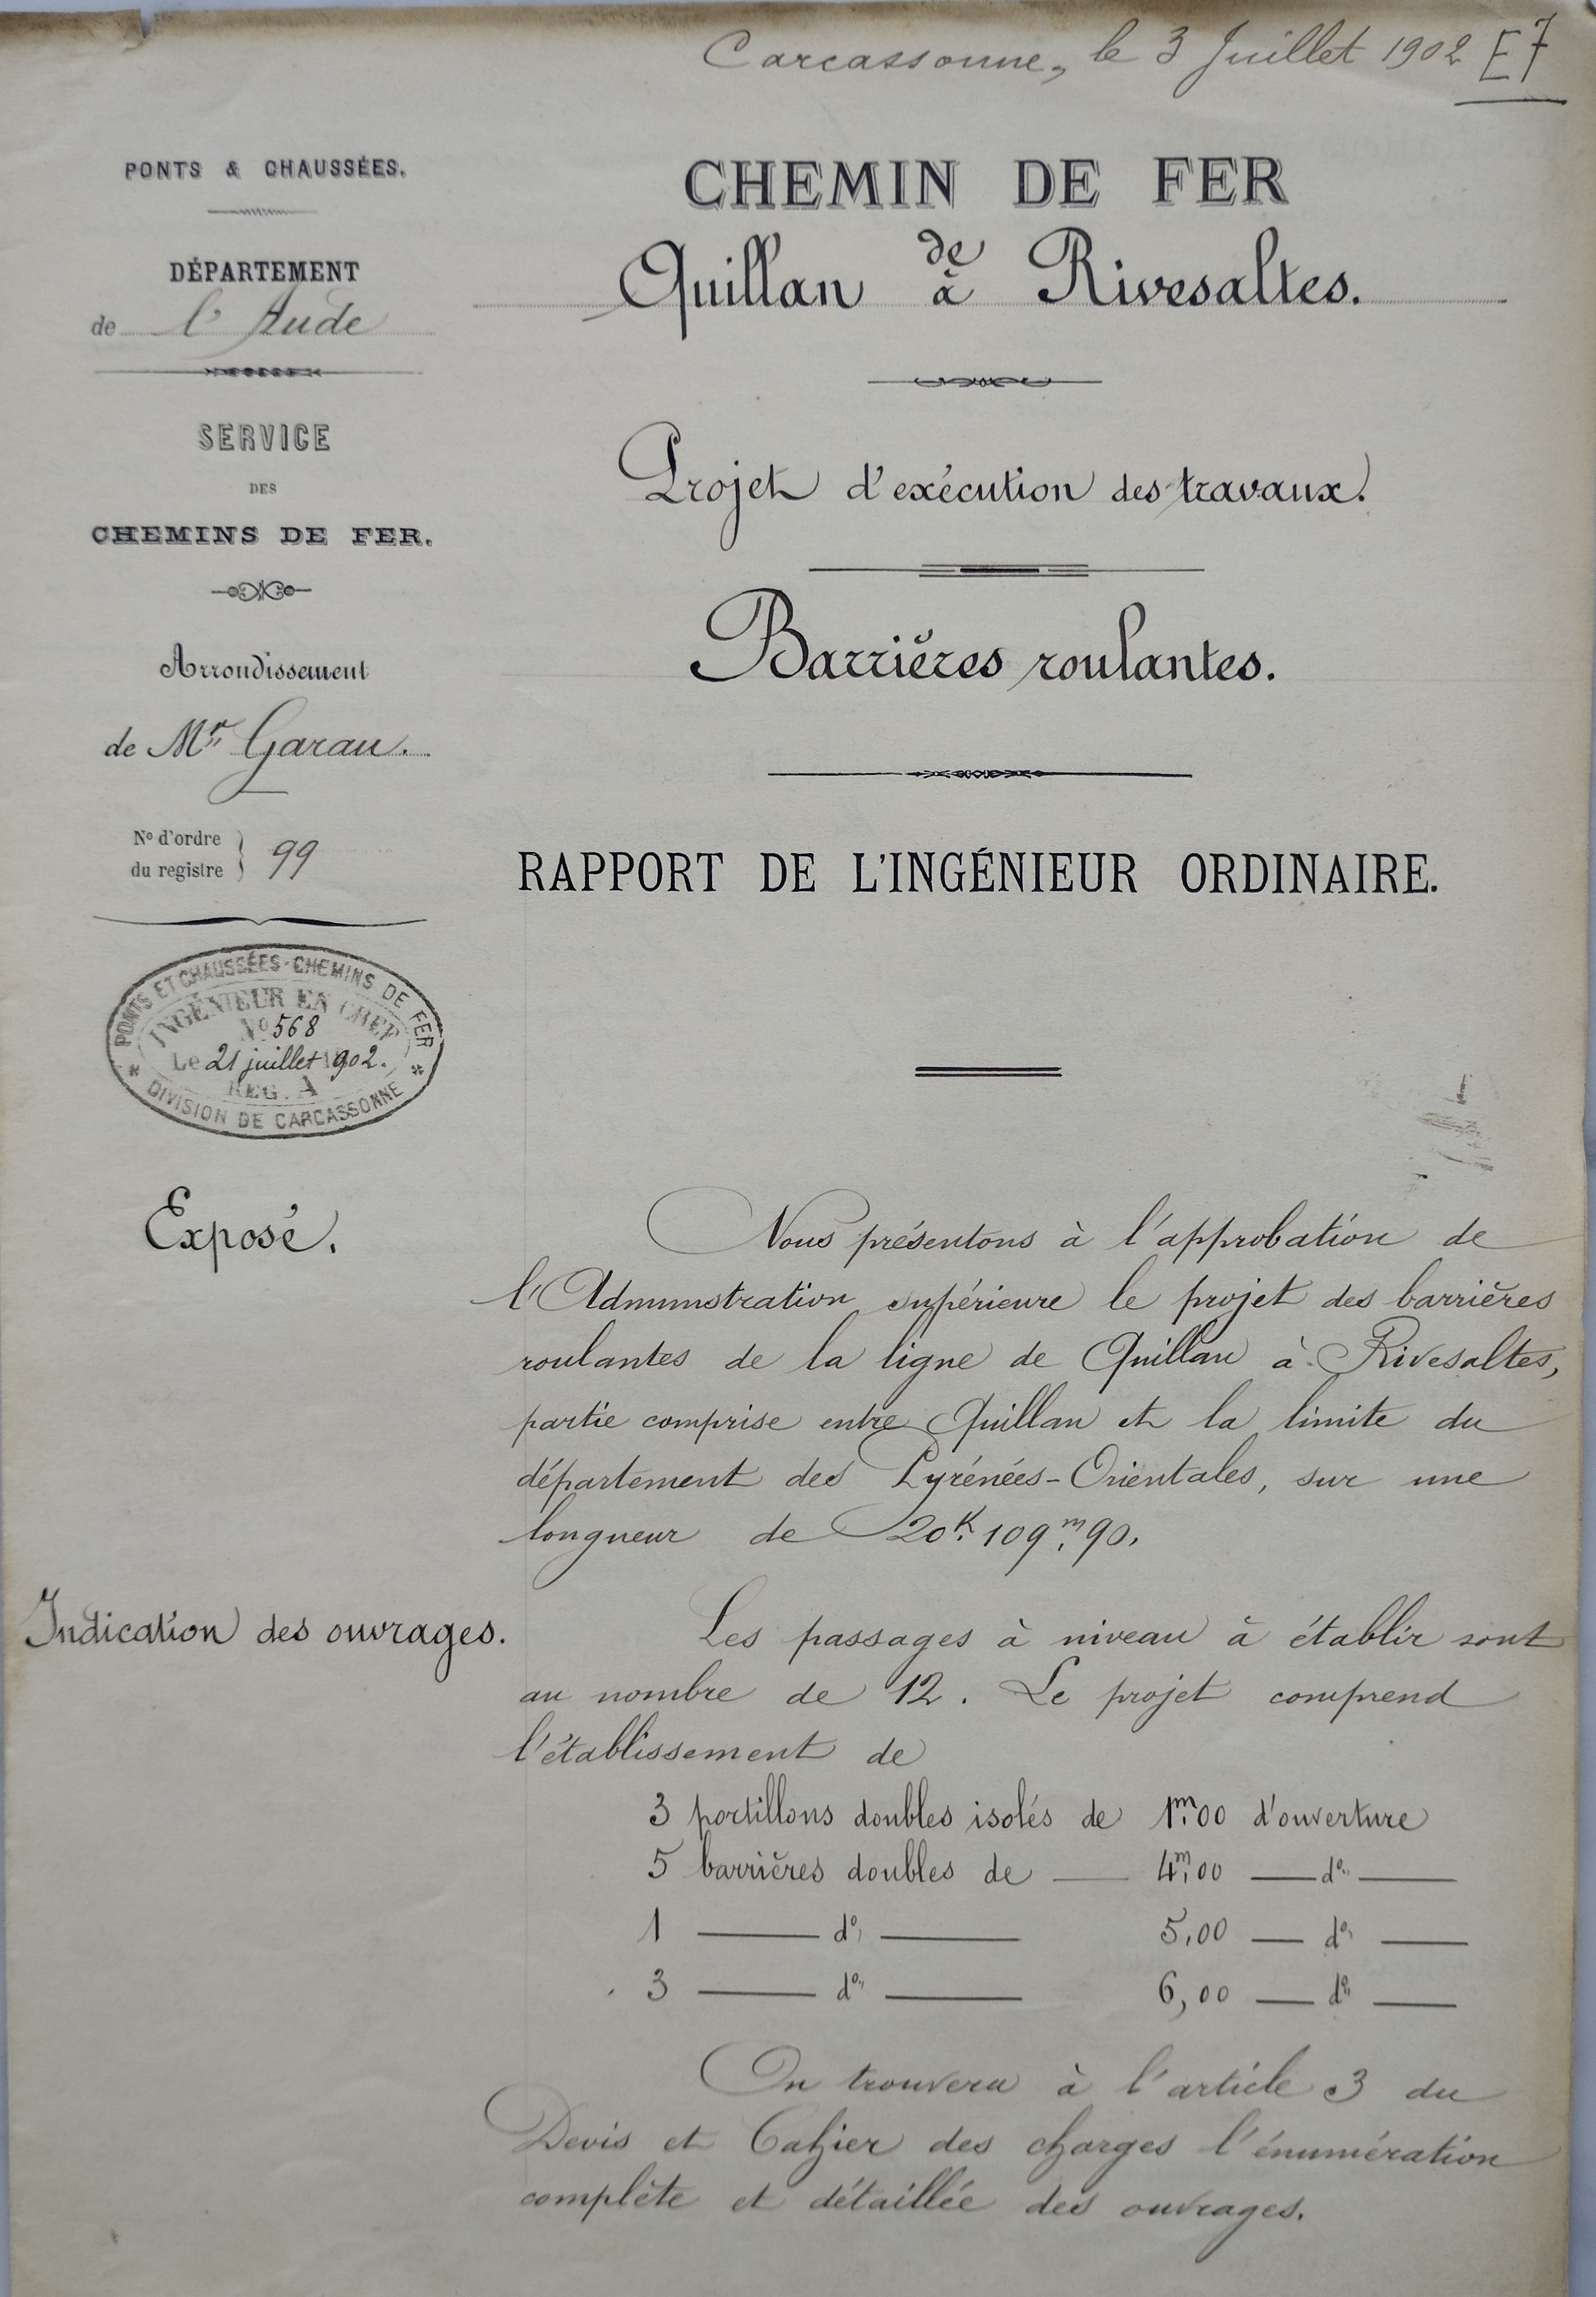 Carcassonne, le 3 Juillet 1902 E7
PONTS & CHAUSSÉES.
DÉPARTEMENT
de l'Aude
SERVICE
DES
CHEMINS DE FER.
Arrondissement
de Mr Garau.
No d'ordre
du registre } 99
PONTS ET CHAUSSÉES - CHEMINS DE FER
INGÉNIEUR EN CHEF
No 568
Le 21 juillet 1902.
REG. A
* DIVISION DE CARCASSONNE *
CHEMIN DE FER
de
Quillan à Rivesaltes.
Projet d'exécution des travaux.
Barrières roulantes.
RAPPORT DE L'INGÉNIEUR ORDINAIRE.
Exposé.
Nous présentons à l'approbation de
l'Administration supérieure le projet des barrières
roulantes de la ligne de Quillan à Rivesaltes,
partie comprise entre Quillan et la limite du
département des Pyrénées-Orientales, sur une
longueur de 20K.109m,90.
Indication des ouvrages.
Les passages à niveau à établir sont
au nombre de 12. Le projet comprend
l'établissement de
3 portillons doubles isolés de 1m,00 d'ouverture
5 barrières doubles de — 4m,00 — do —
1 — do — 5,00 — do —
3 — do — 6,00 — do —
On trouvera à l'article 3 du
Devis et Cahier des charges l'énumération
complète et détaillée des ouvrages.